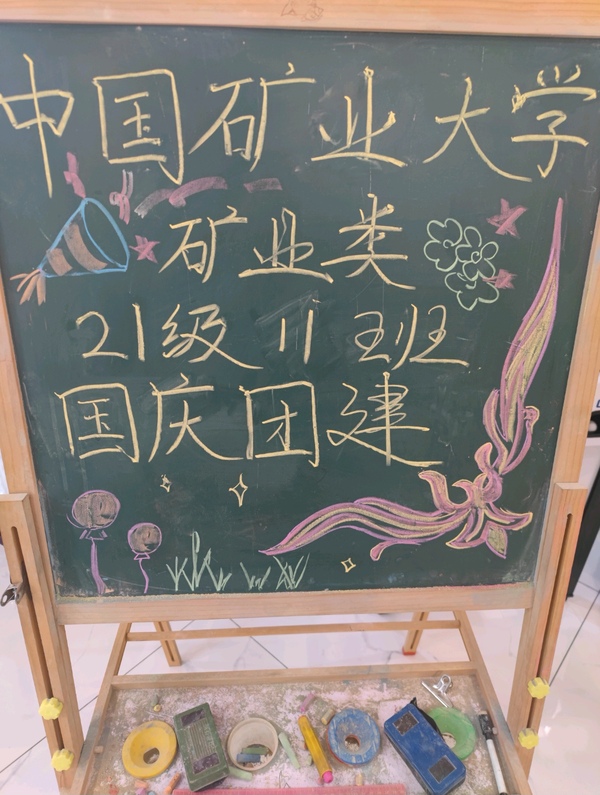 中国矿业大学
矿业类
21级11班
国庆团建